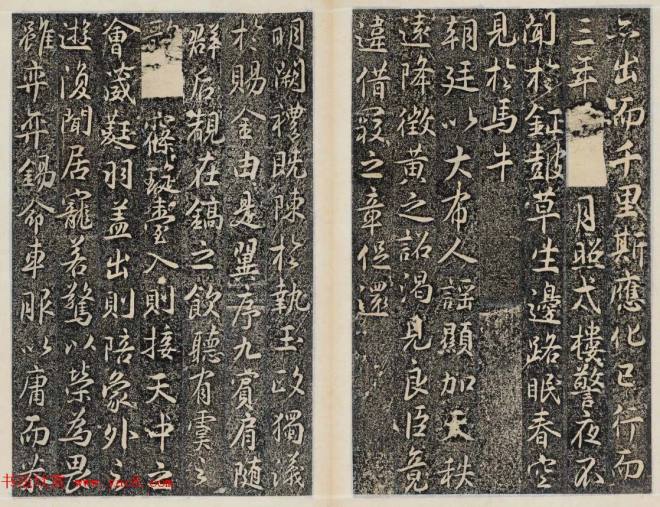 出而千里斯應化已行而
三年月照戍樓警夜不
聞於鉦鼓草生邊路眠春空
見於馬牛
朝廷以大布人謡顯加天秩
遠降徵黃之詔渴見良臣竟
違借寇之章促還
明闕禮既陳於執玉政獨議
於賜金由是翼序九賓肩随
群后覯在鎬之飲聽有虞之
歌璇臺入則接天中之
會葳蕤羽盖出則陪象外之
遊復聞居寵若驚以榮為畏
雖弈弈錫命車服以庸而
书法欣赏 www.yac8.com